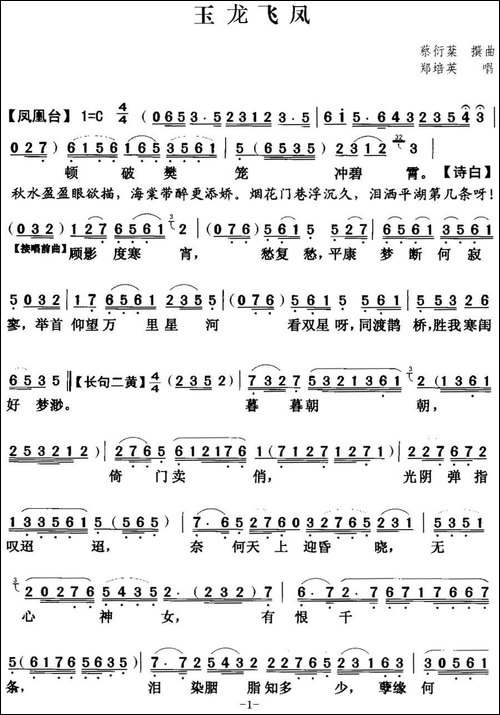 玉龙飞凤
蔡衍棻 撰曲
郑培英 唱
【凤凰台】1=C 4/4 (0653·523123·5 | 6i5·6432354 3
027) 6156153561 | 5(235) 2312 3 |
顿破樊笼 冲碧霄。【诗白】
秋水盈盈眼欲描，海棠带醉更添娇。烟花门巷浮沉久，泪洒平湖第几条呀！
(032) 127656123 2· | (076) 561 5(35) 2317 6561 |
【接唱前曲】顾影度寒宵， 愁复愁，平康梦断何寂
5 032 | 17 6561 2355 | (076) 5 123 5 615 6561 |
寥，举首仰望万里星河 看双星呀，同渡鹊桥，胜我寒闺
6535 ‖【长句二黄】4/4 (2352) | 7327 5321361 2(1361 |
好梦渺。 暮暮朝朝，
253212) | 2765 612176 1(71271271) | 227672
倚门卖俏， 光阴弹指
133561 5(565) | 7·652760 32765231 | 5351
叹迢迢， 奈何天上迎昏晓，无
2 0276 5435 2·(2 3276) | 6·72·7 671717667
心神女，有恨千
5(61765635) | 7·725243 2·(327) | 6165
条， 泪染胭脂知多少，孽缘何
-1-